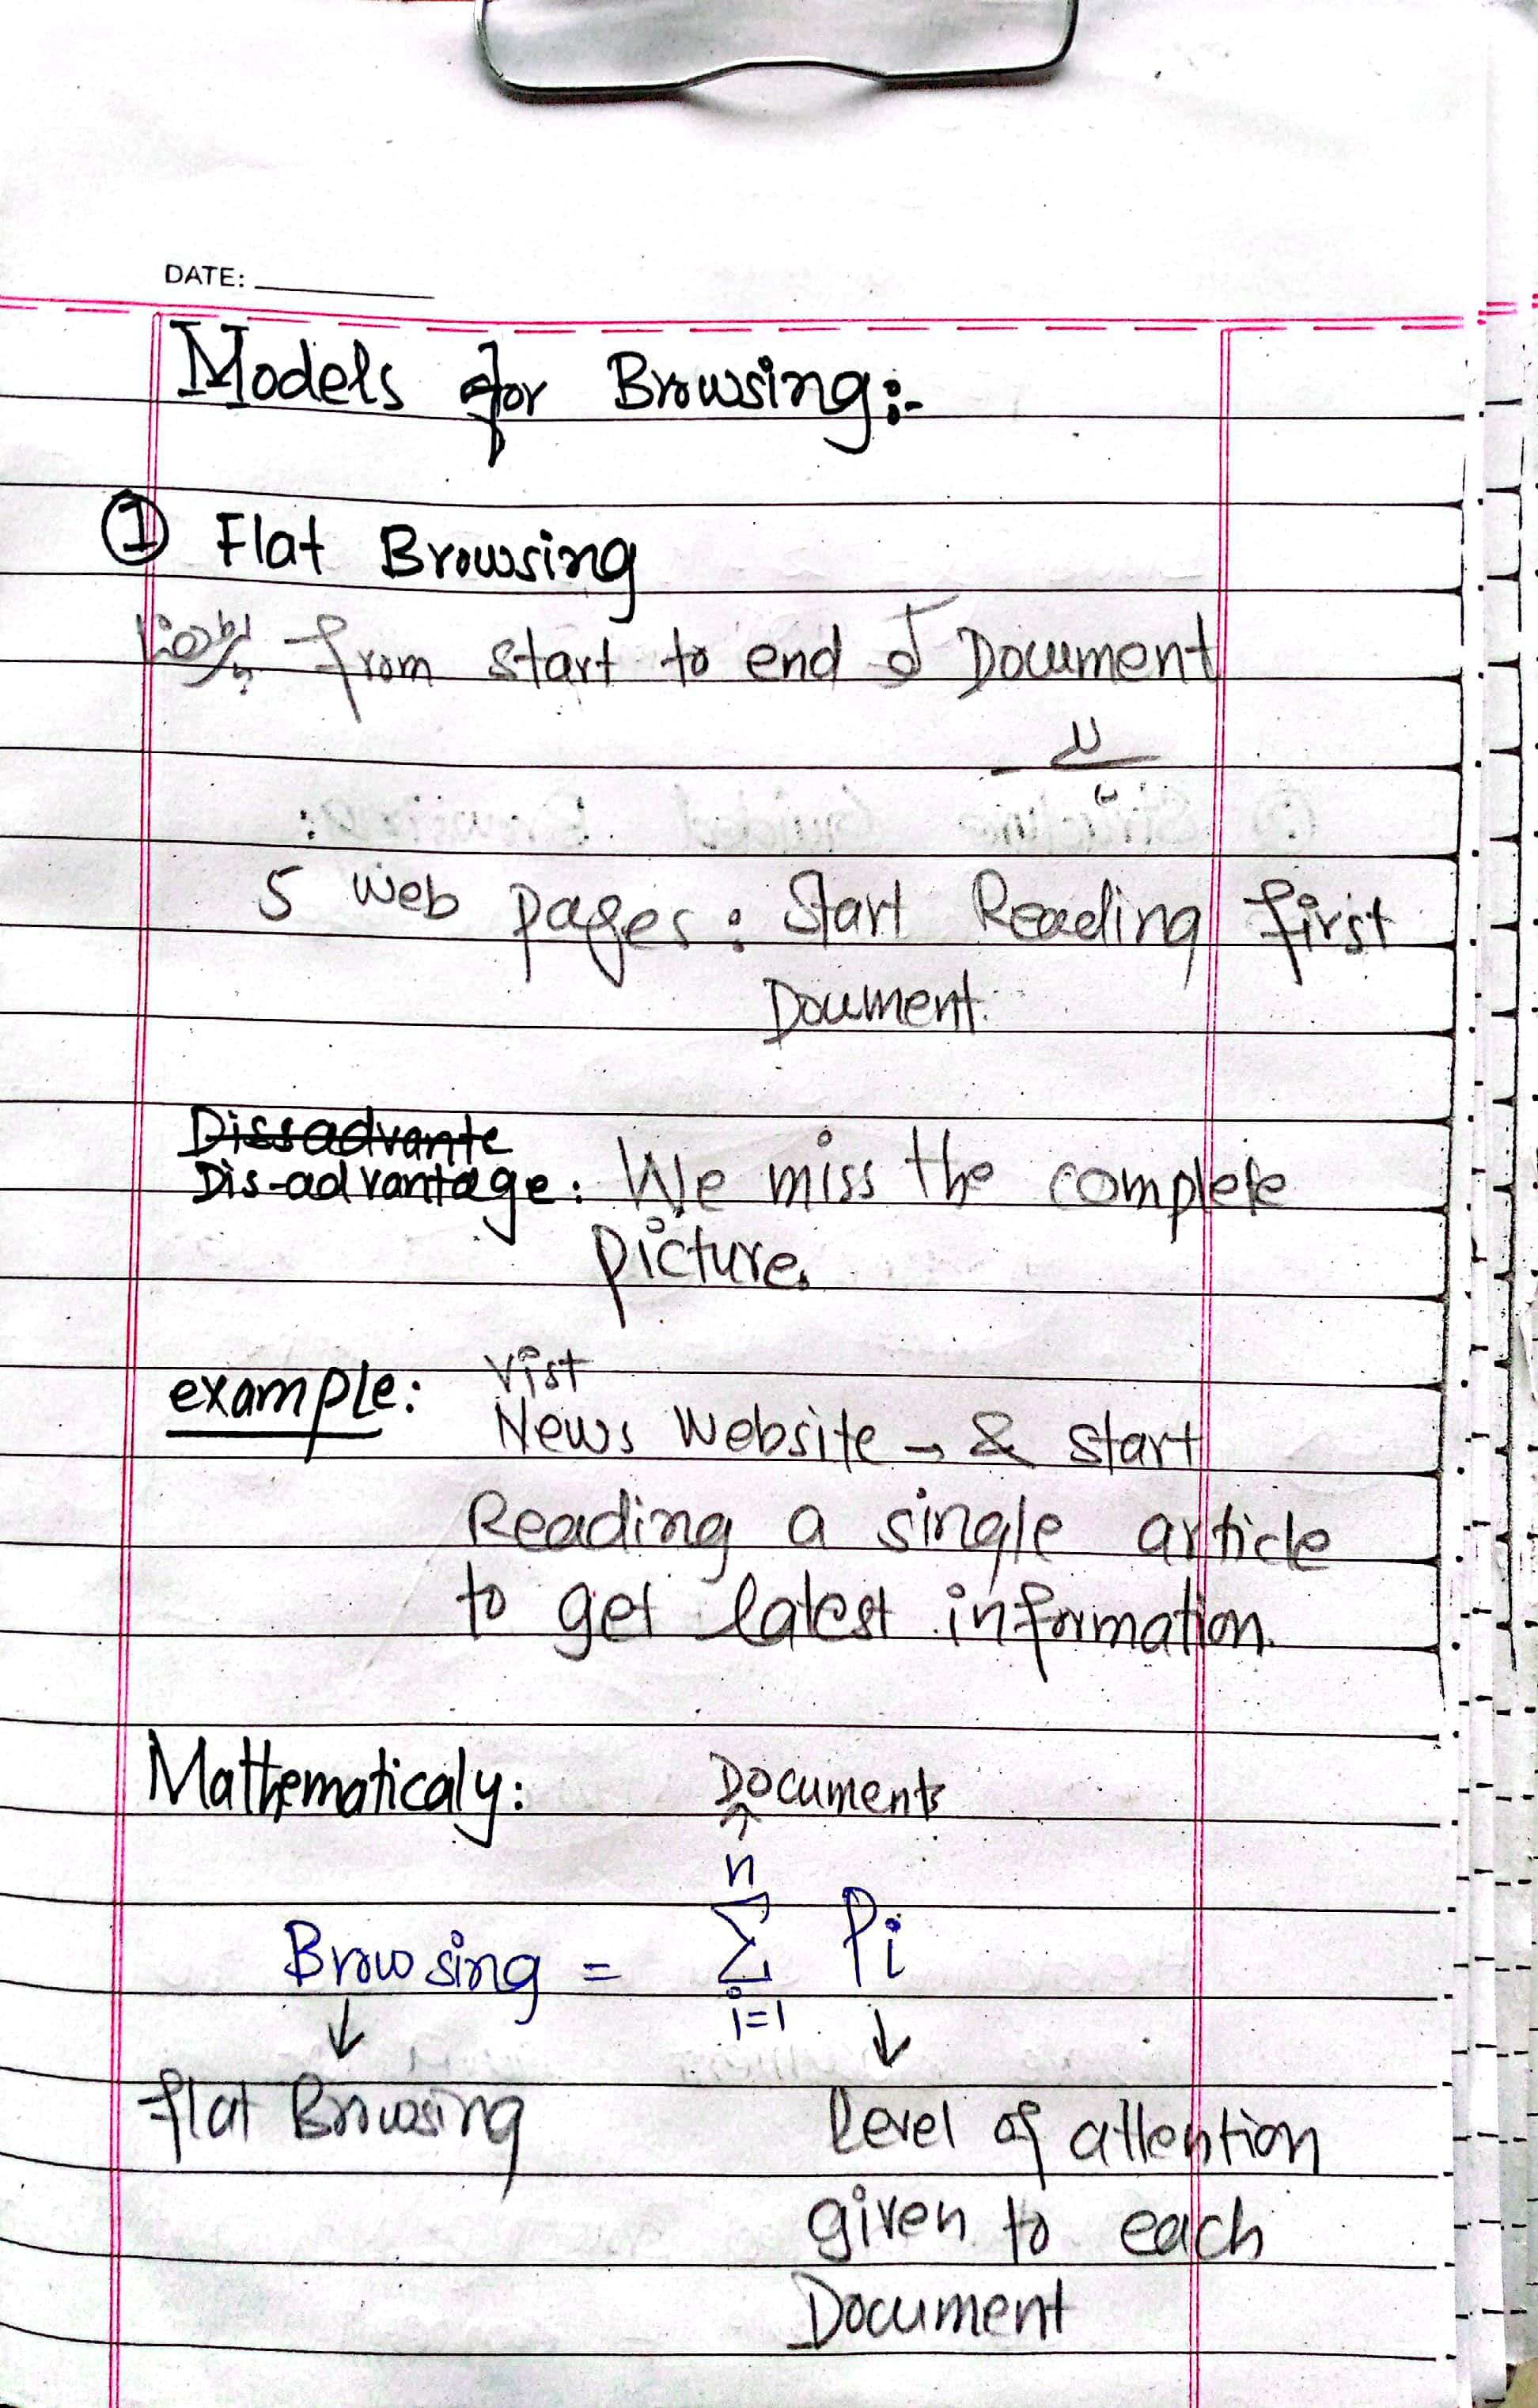 DATE:
Models for Browsing:-
① Flat Browsing
from start to end of Document
5 web pages: Start Reading first
Doument.
Dissadvante
Dis-advantage: We miss the complete
picture.
example: Vist
News Website → & start
Reading a single article
to get latest information.
Mathematicaly: Documents
↑
n
Browsing = Σ Pi
i=1
↓ ↓
flat Browsing level of attention
given to each
Document